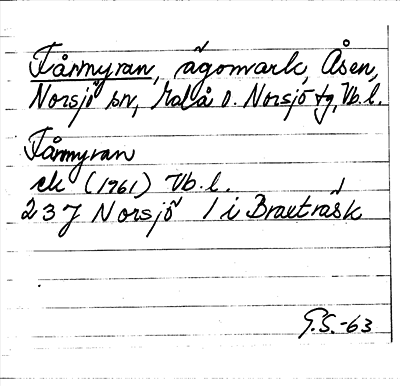 Tårmyran, ägomark, Åsen,
Norsjö sn, Malå o. Norsjö tg, Vb. l.
Tårmyran
ek (1961) Vb. l.
23 J Norsjö 1 i Braxträsk
G.S.-63